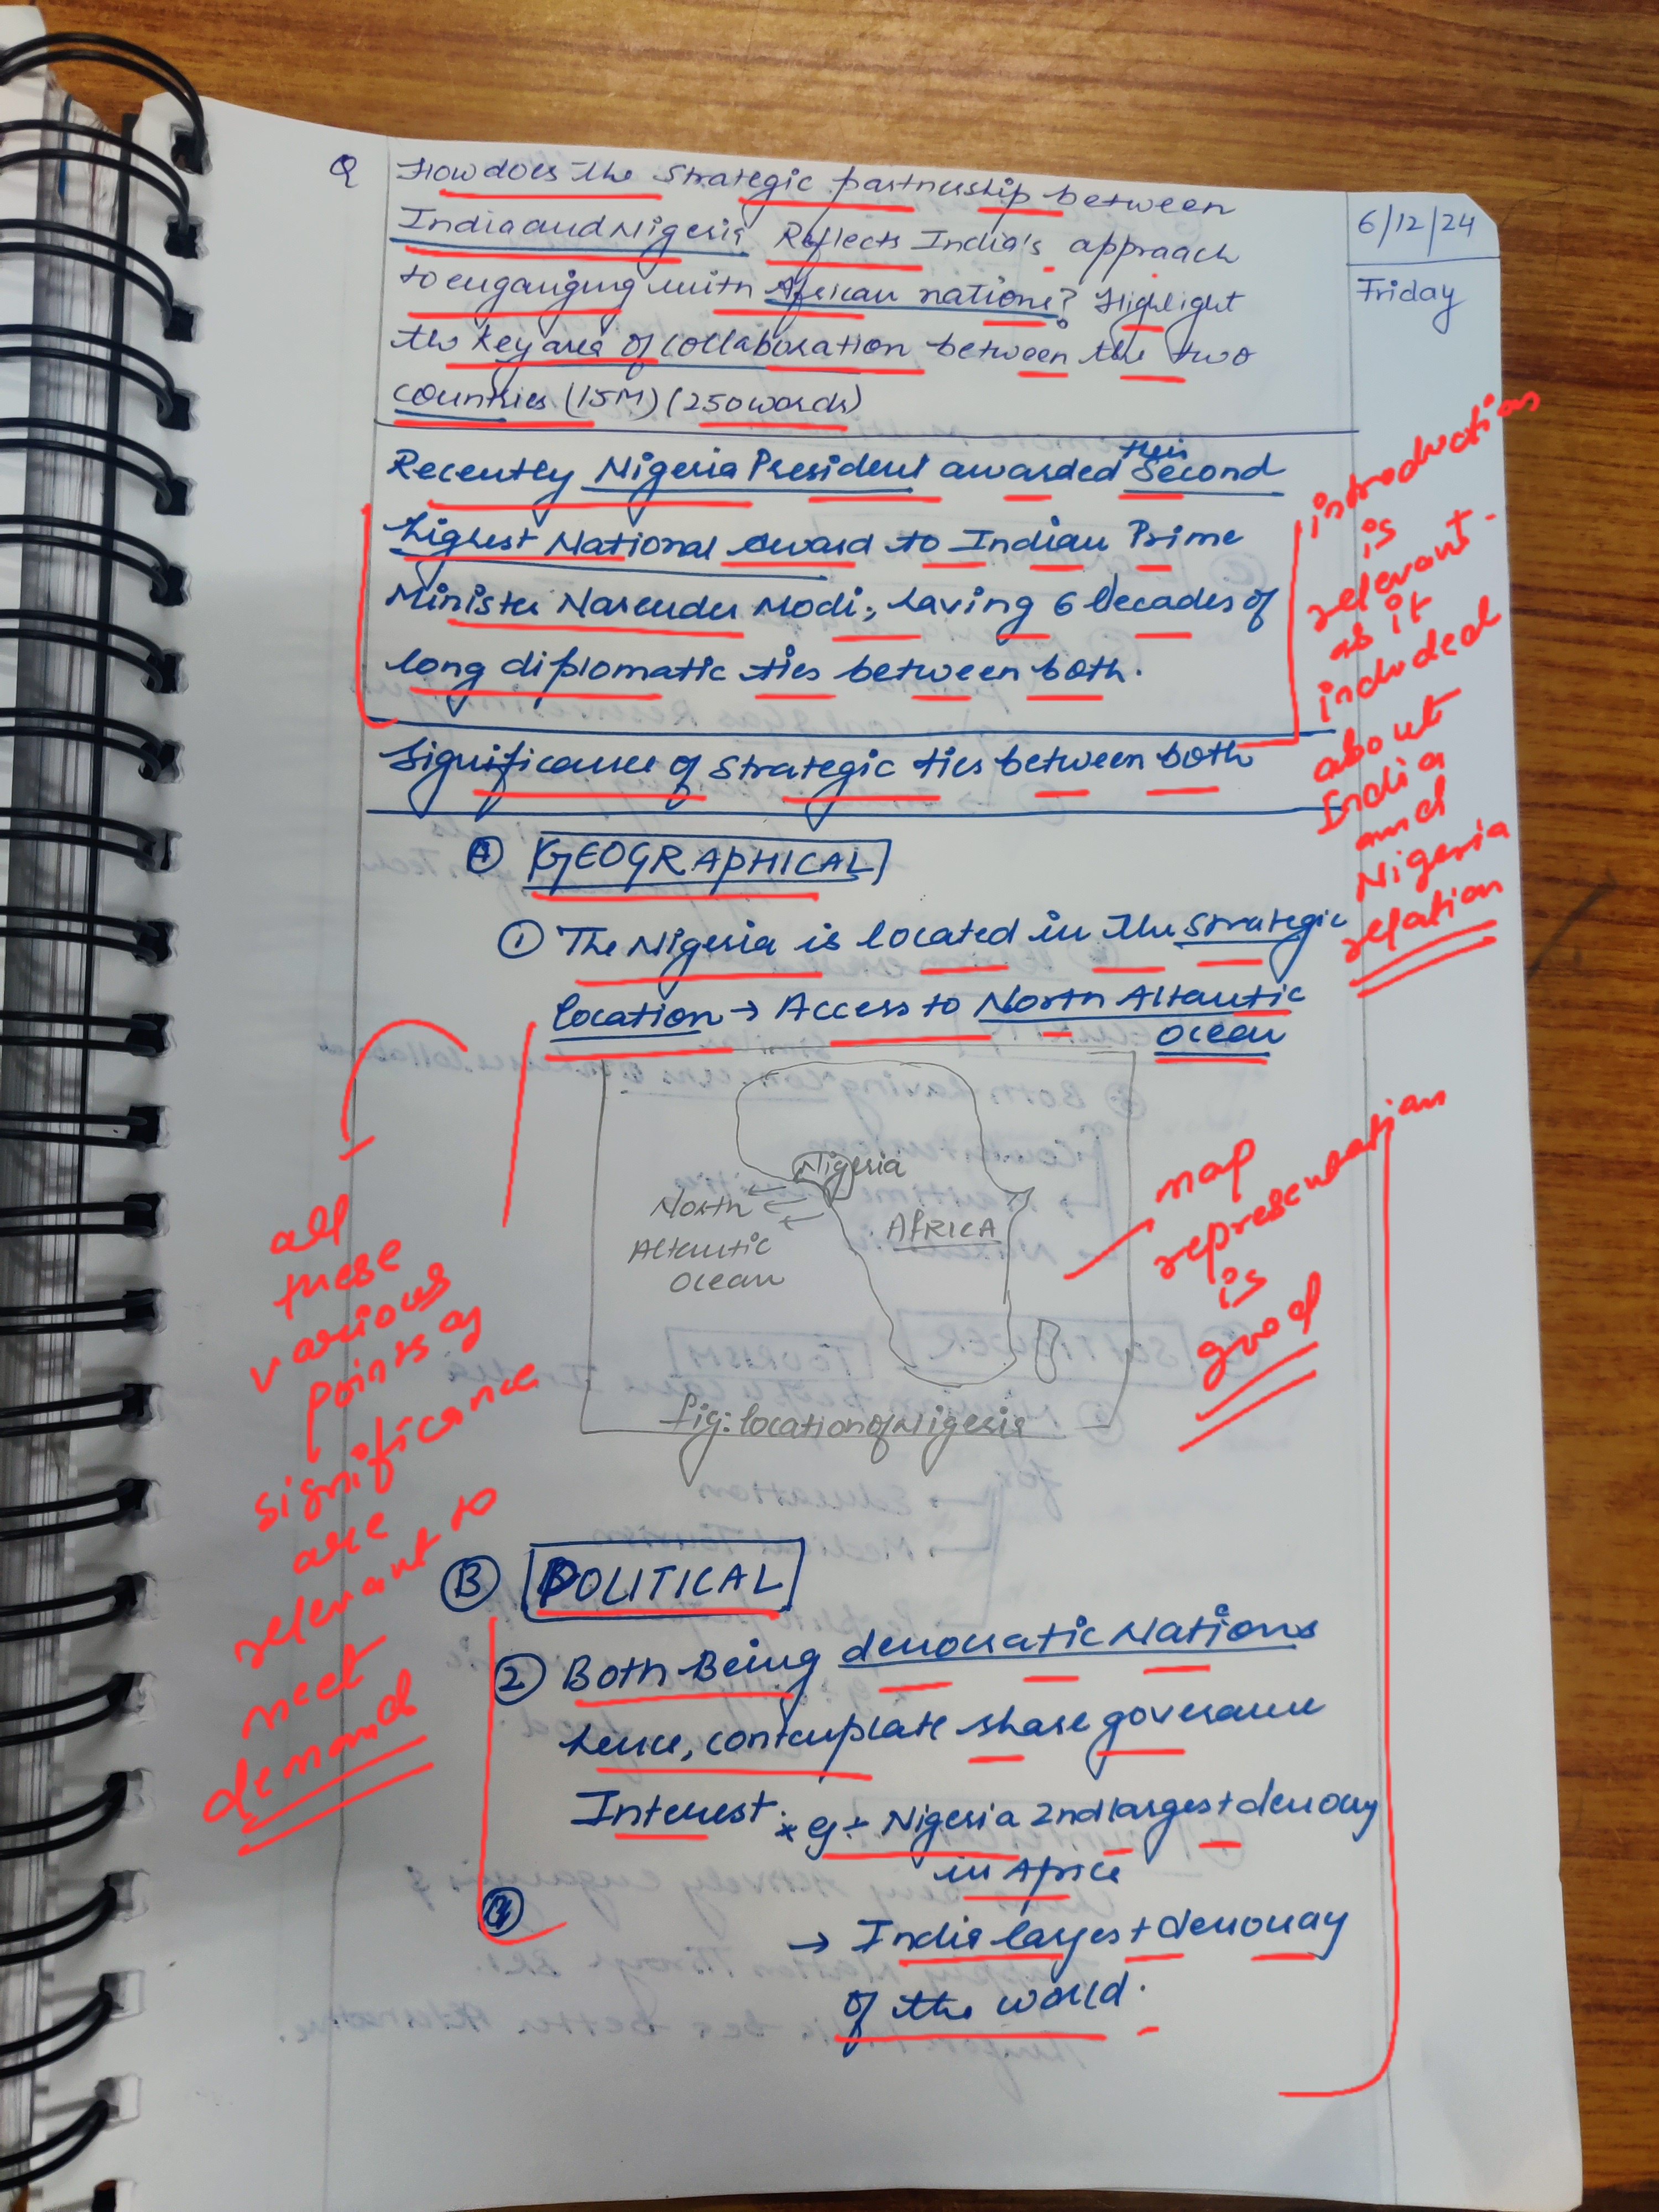 Q How does the Strategic partnership between
India and Nigeria Reflects India's appraach
to enganging with African nations? Highlight
the key area of collaboration between the two
countries (15M) (250 words)
6/12/24
Friday
Recently Nigeria President awarded their Second
highest National award to Indian Prime
Minister Narender Modi, having 6 Decades of
long diplomatic ties between both.
introduction
is
relevant
as it
included
about
India
and
Nigeria
relation
Significance of Strategic ties between both
A GEOGRAPHICAL
1 The Nigeria is located in the strategic
location → Access to North Altantic
Ocean
Nigeria
North
Altantic
Ocean
AFRICA
fig: location of Nigeria
map
representation
is
good
all
these
various
points of
significance
are
relevant to
meet
demand
B POLITICAL
2 Both Being democratic Nations
hence, contemplate share governance
Interest * eg: Nigeria 2nd largest democracy
in Africa
→ India largest democracy
of the world.